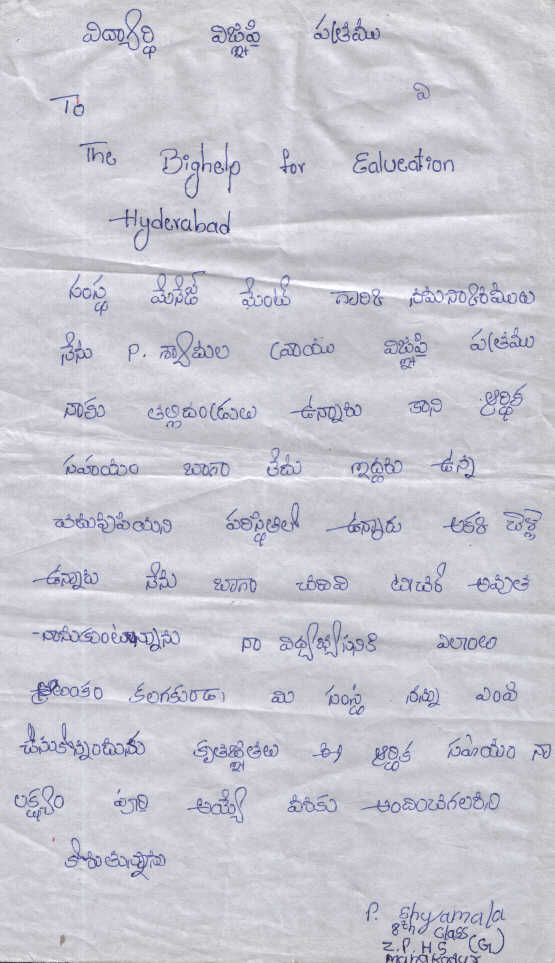 విద్యార్థి విజ్ఞప్తి పత్రము
వి
To
The Bighelp for Ealucation
Hyderabad
సంస్థ మేనేజ్ మెంట్ గారికి నమస్కారములు
నేను P. శ్యామల వ్రాయు విజ్ఞప్తి పత్రము
నాకు తల్లిదండ్రులు ఉన్నారు కాని ఆర్థిక
సహాయం బాగా లేదు ఇద్దరు ఉన్న
చదువుచెయని పరిస్థితిలో ఉన్నారు అకకి చెల్లె
ఉన్నారు నేను బాగా చదివి టీచర్ అవుత
నానుకుంటున్నాను నా విద్యభ్యసనికి ఎలాంటి
ఆటంకం కలగకుండా మి సంస్థ నన్ను ఎంపి
చేసుకొన్నందుకు కృతజ్ఞతలు ఈ ఆర్థిక సహాయం నా
లక్ష్యం పూర్తి అయ్యే వరకు అందించగలరని
కోరుతున్నాను
P. Shyamala
8th Class
Z.P.H.S (G)